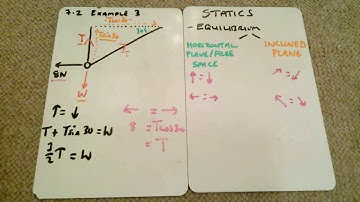 7.2 Example 3
Tcos30
30°
T
Tsin30
T
8N
W
↑ = ↓
T + Tsin30 = W
3/2 T = W
← = →
8 = Tcos30
= T
STATICS
- EQUILIBRIUM
HORIZONTAL
PLANE/FREE
SPACE
↑ = ↓
← = →
INCLINED
PLANE
↗ = ↙
↖ = ↘